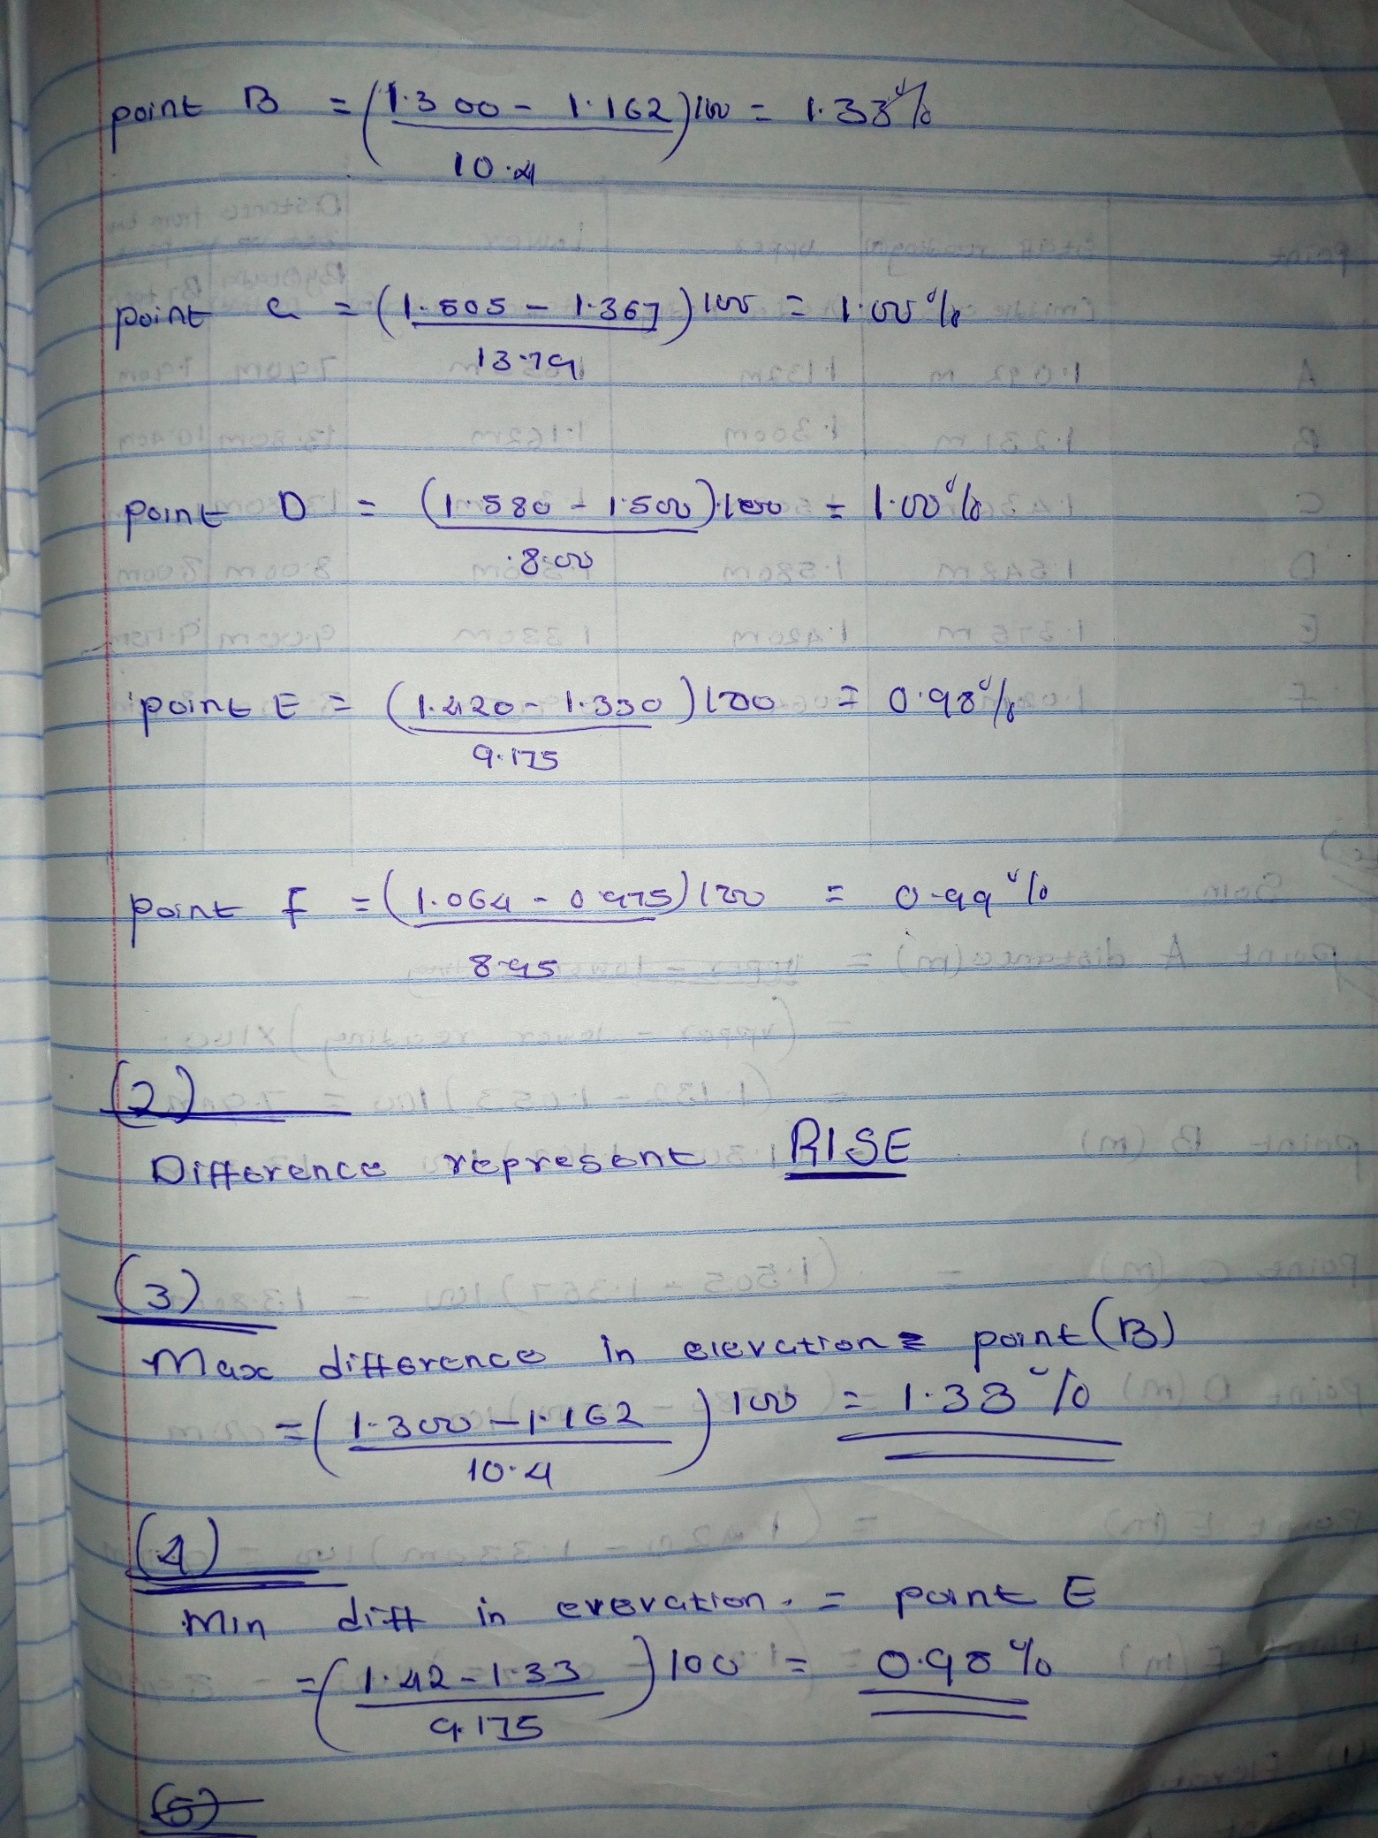 point B = (1.300 - 1.162)100 = 1.33%
10.4
point C = (1.505 - 1.367)100 = 1.00%
13.79
point D = (1.580 - 1.500)100 = 1.00%
8.00
point E = (1.420 - 1.330)100 = 0.98%
9.175
point f = (1.064 - 0.975)100 = 0.99%
8.95
(2)
Difference represent RISE
(3)
Max difference in elevation = point (B)
= (1.300 - 1.162)100 = 1.33%
10.4
(4)
Min diff in erevation. = point E
= (1.42 - 1.33)100 = 0.98%
9.175
(5)